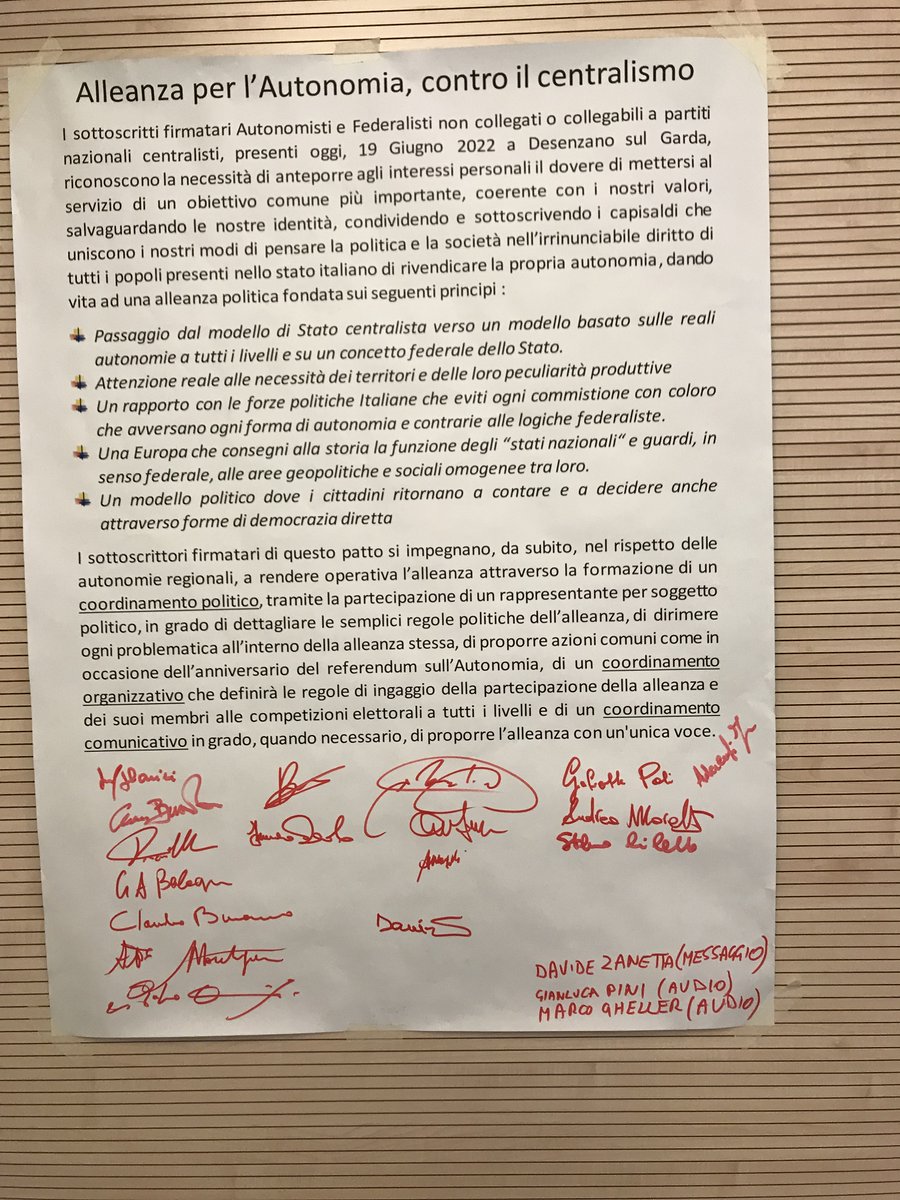 Alleanza per l'Autonomia, contro il centralismo
I sottoscritti firmatari Autonomisti e Federalisti non collegati o collegabili a partiti
nazionali centralisti, presenti oggi, 19 Giugno 2022 a Desenzano sul Garda,
riconoscono la necessità di anteporre agli interessi personali il dovere di mettersi al
servizio di un obiettivo comune più importante, coerente con i nostri valori,
salvaguardando le nostre identità, condividendo e sottoscrivendo i capisaldi che
uniscono i nostri modi di pensare la politica e la società nell'irrinunciabile diritto di
tutti i popoli presenti nello stato italiano di rivendicare la propria autonomia, dando
vita ad una alleanza politica fondata sui seguenti principi :
Passaggio dal modello di Stato centralista verso un modello basato sulle reali
autonomie a tutti i livelli e su un concetto federale dello Stato.
Attenzione reale alle necessità dei territori e delle loro peculiarità produttive
Un rapporto con le forze politiche Italiane che eviti ogni commistione con coloro
che avversano ogni forma di autonomia e contrarie alle logiche federaliste.
Una Europa che consegni alla storia la funzione degli "stati nazionali" e guardi, in
senso federale, alle aree geopolitiche e sociali omogenee tra loro.
Un modello politico dove i cittadini ritornano a contare e a decidere anche
attraverso forme di democrazia diretta
I sottoscrittori firmatari di questo patto si impegnano, da subito, nel rispetto delle
autonomie regionali, a rendere operativa l'alleanza attraverso la formazione di un
coordinamento politico, tramite la partecipazione di un rappresentante per soggetto
politico, in grado di dettagliare le semplici regole politiche dell'alleanza, di dirimere
ogni problematica all'interno della alleanza stessa, di proporre azioni comuni come in
occasione dell'anniversario del referendum sull'Autonomia, di un coordinamento
organizzativo che definirà le regole di ingaggio della partecipazione della alleanza e
dei suoi membri alle competizioni elettorali a tutti i livelli e di un coordinamento
comunicativo in grado, quando necessario, di proporre l'alleanza con un'unica voce.
Andrea
Stefano
Claudio
DAVIDE ZANETTA (MESSAGGIO)
GIANLUCA PINI (AUDIO)
MARCO GHELLER (AUDIO)